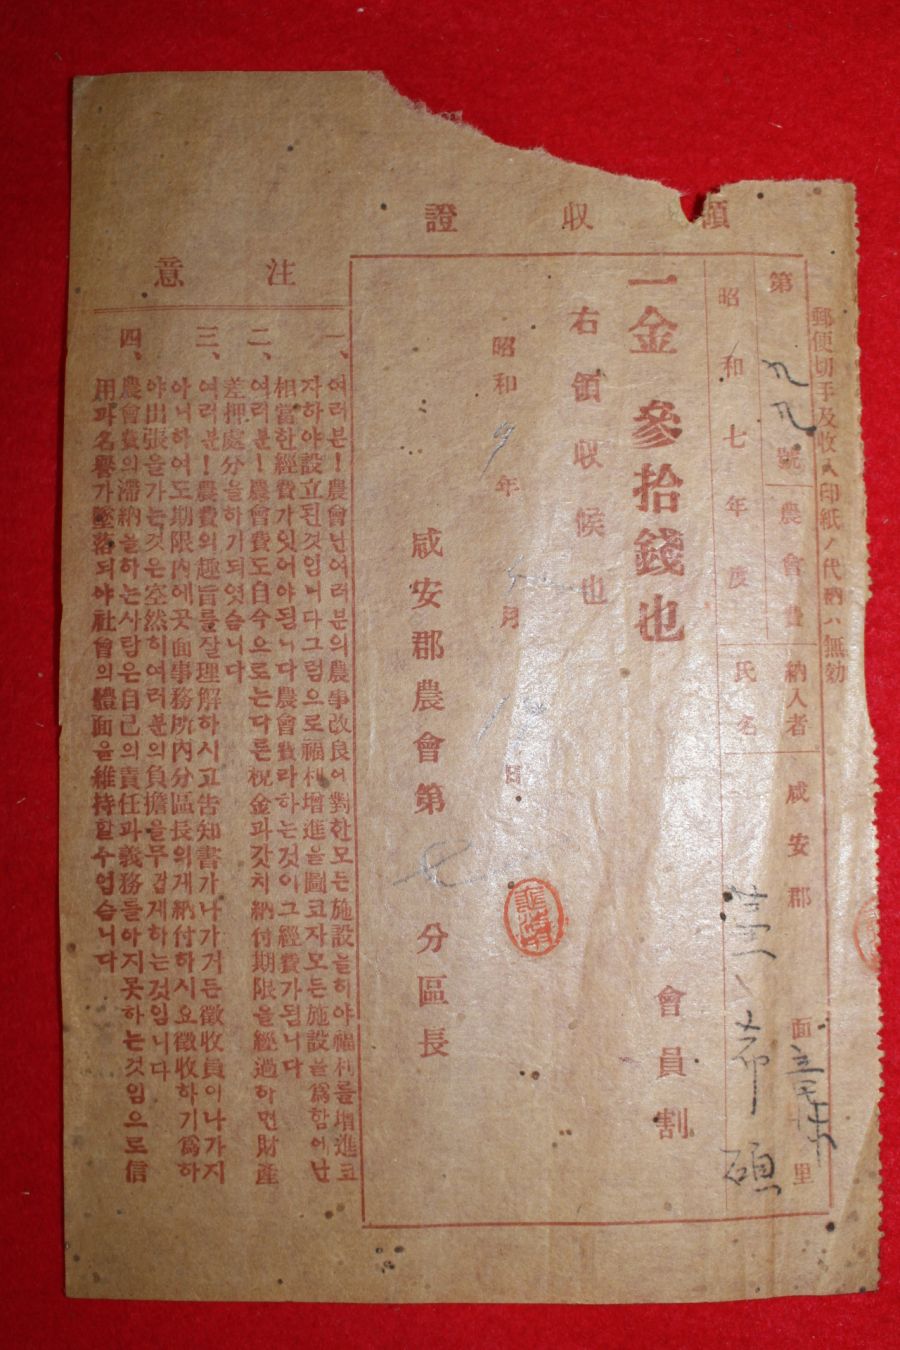 領收證
郵便切手及收入印紙ノ代納ハ無効
第九九號
農會費
納入者
咸安郡
面
里
昭和七年度
氏名
一金 參拾錢也
會員割
右領收候也
昭和 年 月 日
咸安郡農會第七分區長
注意
一、여러분!農會난여러분의農事改良에對한모든施設을하야福利를增進코
자하야設立된것임니다그럼으로福利增進을圖코자모든施設을爲함에난
相當한經費가잇어야됨니다農會費라하는것이그經費가됨니다
二、여러분!農會費도自今으로는다른稅金과갓치納付期限을經過하면財産
差押處分을하기되엿슴니다
三、여러분!農會費의趣旨를잘理解하시고告知書가나가거든徵收員이나가지
아니하여도期限內에곳面事務所內分區長의게納付하시요徵收하기爲하
야出張을가는것은空然히여러분의負擔을무겁게하는것임니다
四、農會費의滯納을하는사람은自己의責任과義務를아지못하는것임으로信
用과名譽가墜落되야社會의體面을維持할수업슴니다